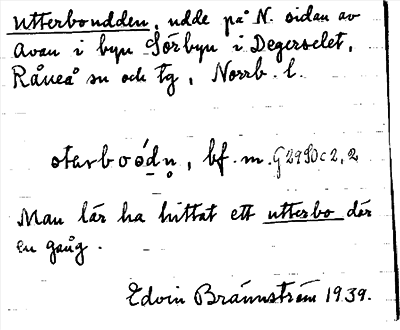 Utterboudden, udde på N. sidan av
Avan i byn Sörbyn i Degerselet,
Råneå sn och tg, Norrb. l.
otərboódṇ, bf. m. G2950c2,2
Man lär ha hittat ett utterbo där
en gång.
Edvin Brännström 1939.